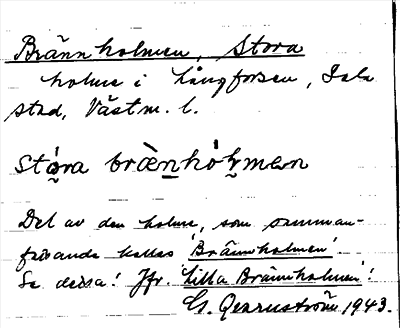 Brännholmen, Stora
holme i Långforsen, Sala
stad, Västm. l.
stóra brænhólmen
Del av den holme, som samman-
fattande kallas 'Brännholmen'.
Se dessa! Jfr. 'Lilla Brännholmen'!
G. 1943.